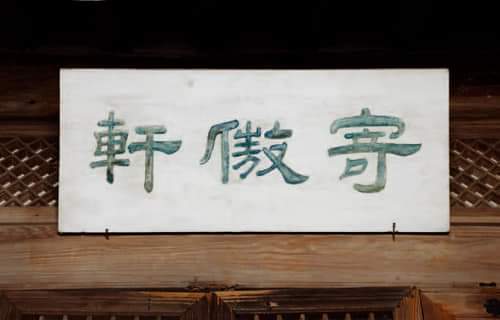 寄傲軒